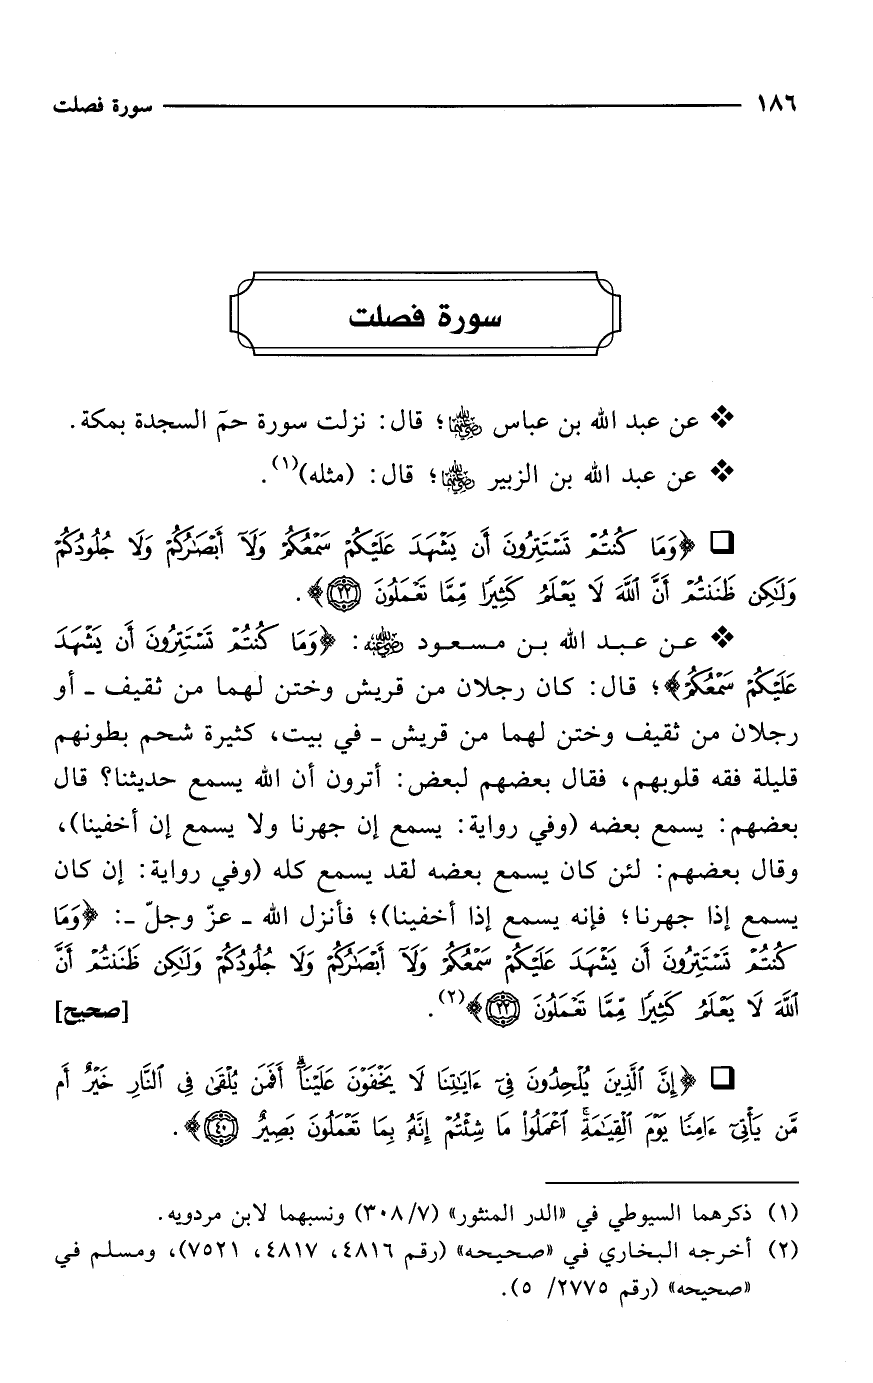 ١٨٦ سورة فصلت
سورة فصلت
❖ عن عبد الله بن عباس ﵄؛ قال: نزلت سورة حمۤ السجدة بمكة.
❖ عن عبد الله بن الزبير ﵄؛ قال: (مثله)(١).
❑ ﴿وَمَا كُنتُمْ تَسْتَتِرُونَ أَن يَشْهَدَ عَلَيْكُمْ سَمْعُكُمْ وَلَآ أَبْصَٰرُكُمْ وَلَا جُلُودُكُمْ
وَلَٰكِن ظَنَنتُمْ أَنَّ ٱللَّهَ لَا يَعْلَمُ كَثِيرًا مِّمَّا تَعْمَلُونَ ٢٢﴾.
❖ عن عبد الله بن مسعود ﵁: ﴿وَمَا كُنتُمْ تَسْتَتِرُونَ أَن يَشْهَدَ
عَلَيْكُمْ سَمْعُكُمْ﴾؛ قال: كان رجلان من قريش وختن لهما من ثقيف ـ أو
رجلان من ثقيف وختن لهما من قريش ـ في بيت، كثيرة شحم بطونهم
قليلة فقه قلوبهم، فقال بعضهم لبعض: أترون أن الله يسمع حديثنا؟ قال
بعضهم: يسمع بعضه (وفي رواية: يسمع إن جهرنا ولا يسمع إن أخفينا)،
وقال بعضهم: لئن كان يسمع بعضه لقد يسمع كله (وفي رواية: إن كان
يسمع إذا جهرنا؛ فإنه يسمع إذا أخفينا)؛ فأنزل الله ـ عزّ وجلّ ـ: ﴿وَمَا
كُنتُمْ تَسْتَتِرُونَ أَن يَشْهَدَ عَلَيْكُمْ سَمْعُكُمْ وَلَآ أَبْصَٰرُكُمْ وَلَا جُلُودُكُمْ وَلَٰكِن ظَنَنتُمْ أَنَّ
ٱللَّهَ لَا يَعْلَمُ كَثِيرًا مِّمَّا تَعْمَلُونَ ٢٢﴾(٢). [صحيح]
❑ ﴿إِنَّ ٱلَّذِينَ يُلْحِدُونَ فِىٓ ءَايَٰتِنَا لَا يَخْفَوْنَ عَلَيْنَآ ۗ أَفَمَن يُلْقَىٰ فِى ٱلنَّارِ خَيْرٌ أَم
مَّن يَأْتِىٓ ءَامِنًا يَوْمَ ٱلْقِيَٰمَةِ ۚ ٱعْمَلُوا۟ مَا شِئْتُمْ إِنَّهُۥ بِمَا تَعْمَلُونَ بَصِيرٌ ٤٠﴾.
(١) ذكرهما السيوطي في «الدر المنثور» (٣٠٨/٧) ونسبهما لابن مردويه.
(٢) أخرجه البخاري في «صحيحه» (رقم ٤٨١٦، ٤٨١٧، ٧٥٢١)، ومسلم في
«صحيحه» (رقم ٢٧٧٥/ ٥).